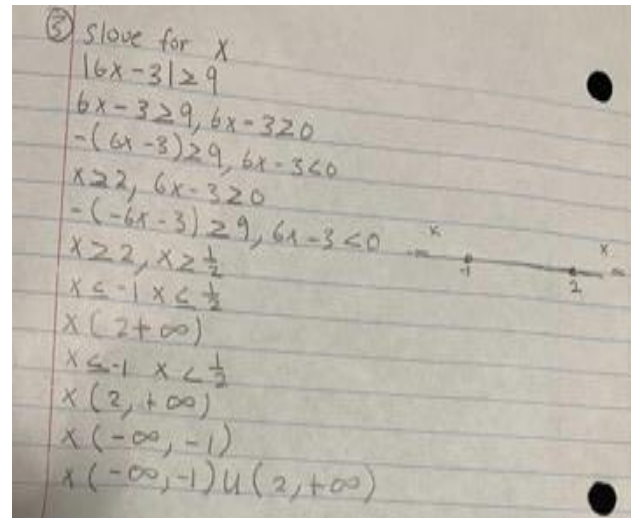 ③ Slove for X
|6x-3|≥9
6x-3≥9, 6x-3≥0
-(6x-3)≥9, 6x-3<0
x≥2, 6x-3≥0
-(-6x-3)≥9, 6x-3<0
x≥2, x≥1/2
x≤-1 x≤1/2
x(2+∞)
x≤-1 x<1/2
x(2,+∞)
x(-∞,-1)
x(-∞,-1)U(2,+∞)
x x
-∞ -1 2 ∞